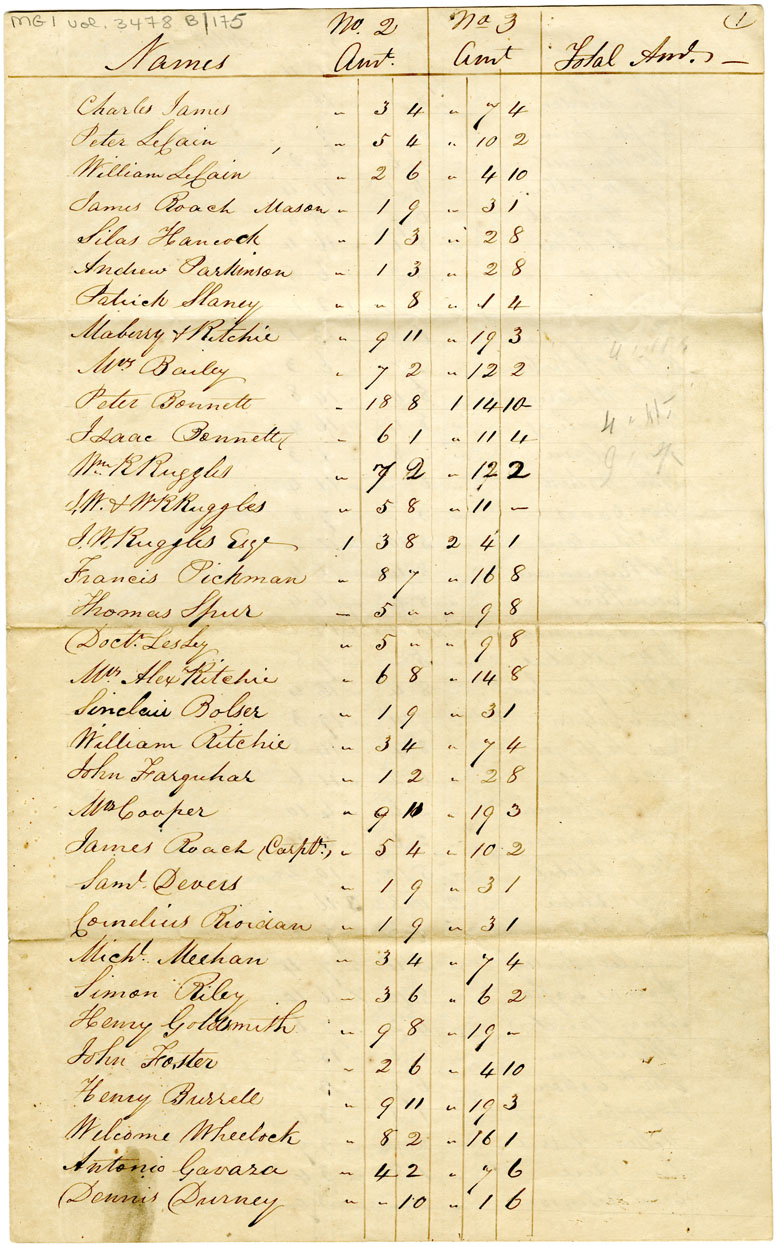 MG1 vol. 3478 B/175
1
No. 2 No 3
Names Amt. Amt Total Amt. —
Charles James " 3 4 " 7 4
Peter LeCain " 5 4 " 10 2
William LeCain " 2 6 " 4 10
James Roach Mason " 1 9 " 3 1
Silas Hancock " 1 3 " 2 8
Andrew Parkinson " 1 3 " 2 8
Patrick Slaney " " 8 " 1 4
Maberry & Ritchie " 9 11 " 19 3
Mrs Bailey " 7 2 " 12 2
Peter Bonnett " 18 8 1 14 10
Isaac Bonnett " 6 1 " 11 4
Wm R Ruggles " 7 2 " 12 2
J. W. & W R Ruggles " 5 8 " 11 —
J. W. Ruggles Esqr 1 3 8 2 4 1
Francis Pickman " 8 7 " 16 8
Thomas Spur — 5 " " 9 8
Doctr. Lesley " 5 " " 9 8
Mrs. Alexr Ritchie " 6 8 " 14 8
Sinclair Bolser " 1 9 " 3 1
William Ritchie " 3 4 " 7 4
John Farquhar " 1 2 " 2 8
Mrs Cooper " 9 11 " 19 3
James Roach (Carptr.) " 5 4 " 10 2
Saml. Devers " 1 9 " 3 1
Cornelius Riordan " 1 9 " 3 1
Michl. Meehan " 3 4 " 7 4
Simon Riley — 3 6 " 6 2
Henry Goldsmith " 9 8 " 19 "
John Foster " 2 6 " 4 10
Henry Burrell " 9 11 " 19 3
Welcome Wheelock " 8 2 " 16 1
Antonio Gavaza " 4 2 " 7 6
Dennis Durney " " 10 " 1 6